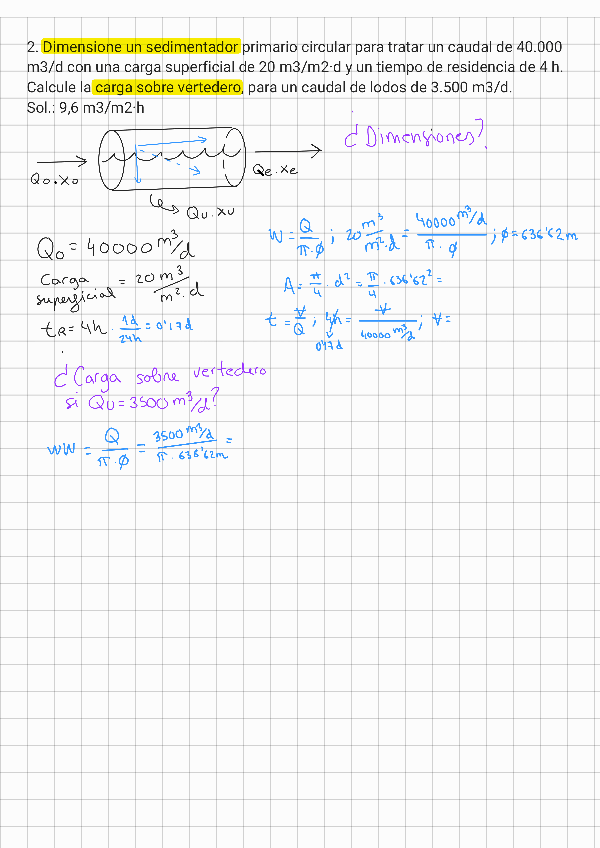 2. Dimensione un sedimentador primario circular para tratar un caudal de 40.000
m3/d con una carga superficial de 20 m3/m2·d y un tiempo de residencia de 4 h.
Calcule la carga sobre vertedero, para un caudal de lodos de 3.500 m3/d.
Sol.: 9,6 m3/m2·h
¿Dimensiones?
Qo.Xo
Qe.Xe
Qu.Xu
W = Q/π·Ø ; 20 m³/m²·d = 40000 m³/d / π·Ø ; Ø = 636'62 m
Qo = 40000 m³/d
Carga superficial = 20 m³/m²·d
A = π/4 · d² = π/4 · 636'62² =
tR = 4h · 1d/24h = 0'17d
t = V/Q ; 4h = V / 40000 m³/d ; V =
0'17d
¿Carga sobre vertedero
si Qu = 3500 m³/d?
WW = Q/π·Ø = 3500 m³/d / π·636'62m =